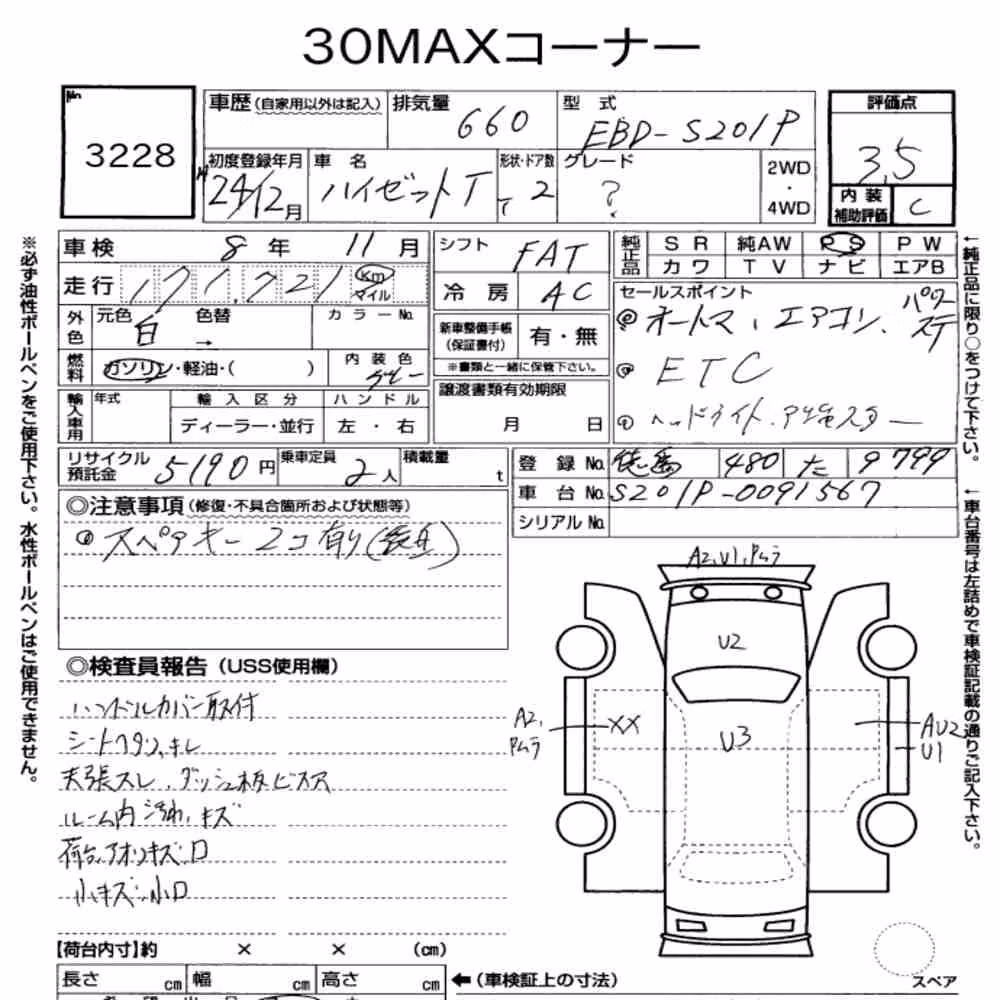 30MAXコーナー
No. 3228
車歴(自家用以外は記入)
排気量 660
型式 EBD-S201P
評価点 3.5
初度登録年月 24/12月
車名 ハイゼットT
形状・ドア数 T 2
グレード ?
2WD・4WD
内装補助評価 C
車検 8年 11月
シフト FAT
純正品 SR 純AW PS PW
カワ TV ナビ エアB
走行 171,721 km マイル
冷房 AC
セールスポイント
オートマ、エアコン、パワステ
外色 元色 白 色替 → カラーNo.
新車整備手帳(保証書付) 有・無
※書類と一緒に保管下さい。
ETC
燃料 ガソリン・軽油・( )
内装色 グレー
譲渡書類有効期限 月 日
ヘッドライト
輸入車用 年式 輸入区分 ハンドル
ディーラー・並行 左・右
リサイクル預託金 5190円
乗車定員 2人
積載量 t
登録No. 480 た 9799
車台No. S201P-0091567
シリアルNo.
◎注意事項(修復・不具合箇所および状態等)
スペアキー2コ有り
◎検査員報告(USS使用欄)
ハンドルカバー取付
シートヘタリ、キレ
天張スレ、ダッシュ板ビスアナ
ルーム内汚れ、キズ
荷台、アオリキズ凹
小キズ小凹
A2, U1, Pムラ
U2
A2, Pムラ
XX
U3
AU2
U1
スペア
【荷台内寸】約 × × (cm)
長さ cm 幅 cm 高さ cm
←(車検証上の寸法)
※必ず油性ボールペンをご使用下さい。水性ボールペンはご使用できません。
←純正品に限り○をつけて下さい。
←車台番号は左詰めで車検証記載の通りご記入下さい。